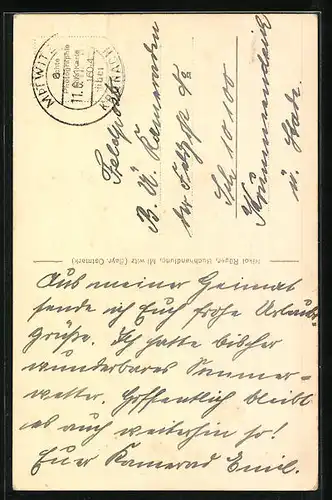 MITWITZ
über
KRONACH
11.6.
Feldpost
A. W. Kameraden
der Feldpost No
10100
Krummendeich
ü. Stade.
Nikol Rüger, Buchhandlung, Mitwitz (Bayr. Ostmark)
Aus meiner Heimat
sende ich Euch frohe Urlaubs-
grüße. Ich hatte bisher
wunderbares Sommer-
wetter. Hoffentlich bleibt
es auch weiterhin so!
Euer Kamerad Emil.